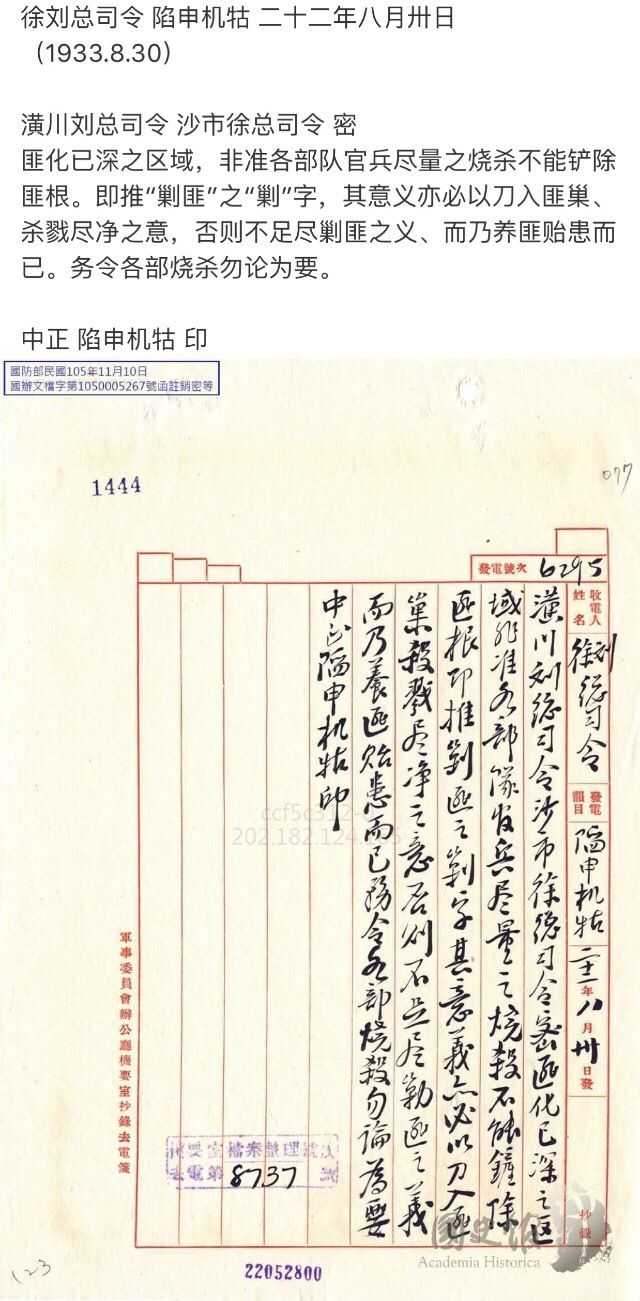 徐刘总司令 陷申机牯 二十二年八月卅日
（1933.8.30）
潢川刘总司令 沙市徐总司令 密
匪化已深之区域，非准各部队官兵尽量之烧杀不能铲除
匪根。即推“剿匪”之“剿”字，其意义亦必以刀入匪巢、
杀戮尽净之意，否则不足尽剿匪之义、而乃养匪贻患而
已。务令各部烧杀勿论为要。
中正 陷申机牯 印
國防部民國105年11月10日
國辦文檔字第1050005267號函註銷密等
1444
077
發電號次 6295
收電人姓名 徐刘総司令 發電韻目 陷申机牯 二十二年八月卅日發 抄錄
潢川刘総司令沙市徐総司令密匪化已深之区
域非准各部隊官兵尽量之烧殺不能鏟除
匪根即推剿匪之剿字其意義亦必以刀入匪
巢殺戮尽净之意否则不足尽剿匪之義
而乃養匪贻患而已務令各部烧殺勿論為要
中正陷申机牯印
軍事委員會辦公廳機要室抄錄去電箋
機要室檔案整理號次
去電第8737號
202.182.124.
國史館
Academia Historica
123
22052800